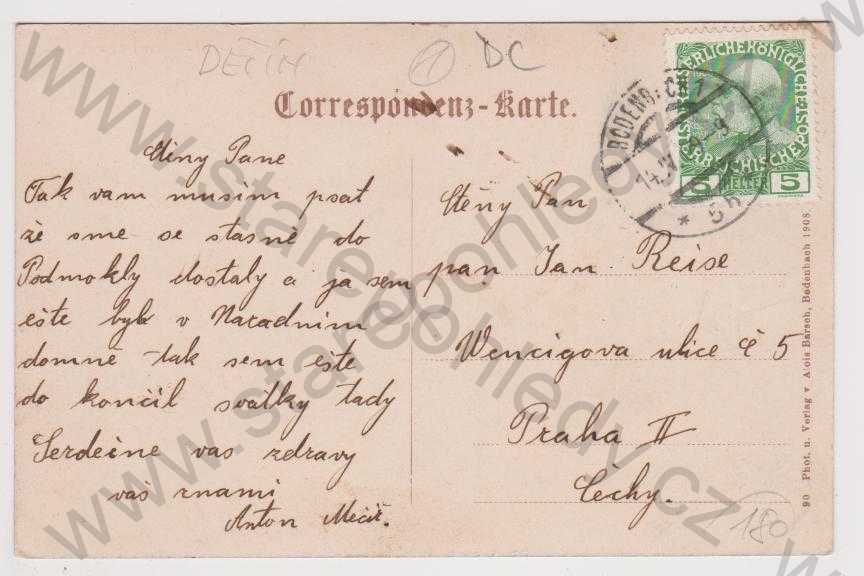 DĚČÍN
DC
Correspondenz-Karte.
Cteny Pane
Tak vam musim psat
že sme se stasně do
Podmokly dostaly a ja sem
ešte byl v Naradnim
domne tak sem ešte
do končil svatky tady
Serdečne vas zdravy
vaš znami
Anton
Cteny Pan
pan Jan Reise
Wencigova ulice č 5
Praha II
Čechy.
BODENB
5
HELLER
5
90 Phot. u. Verlag v. Alois Barsch, Bodenbach 1908.
180
www.starepohledy.cz